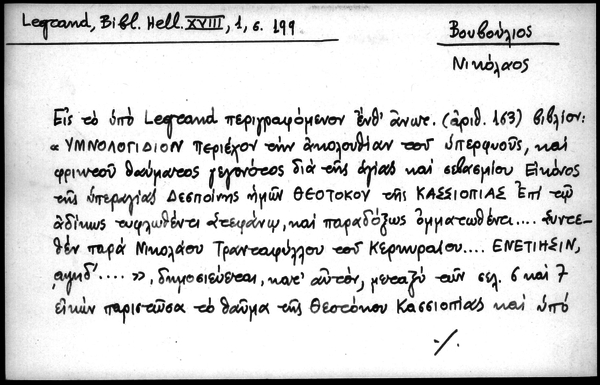 Legrand, Bibl. Hell. XVIII, 1, σ. 199
Βουβούλιος
Νικόλαος
Εἰς τὸ ὑπὸ Legrand περιγραφόμενον ἔνθ' ἄνωτ. (ἀριθ. 163) βιβλίον:
« ΥΜΝΟΛΟΓΙΔΙΟΝ περιέχον τὴν ἀκολουθίαν τοῦ ὑπερφυοῦς, καὶ
φρικτοῦ θαύματος γεγονότος διὰ τῆς ἁγίας καὶ σεβασμίου Εἰκόνος
τῆς ὑπεραγίας Δεσποίνης ἡμῶν ΘΕΟΤΟΚΟΥ τῆς ΚΑΣΣΙΟΠΙΑΣ Ἐπὶ τῷ
ἀδίκως τυφλωθέντι Στεφάνῳ, καὶ παραδόξως ὀμματωθέντι.... Συντε-
θὲν παρὰ Νικολάου Τρανταφύλλου τοῦ Κερκυραίου.... ΕΝΕΤΙΗΣΙΝ,
.... », δημοσιεύεται, κατ' αὐτόν, μεταξὺ τῶν σελ. 6 καὶ 7
εἰκὼν παριστῶσα τὸ θαῦμα τῆς Θεοτόκου Κασσιοπίας καὶ ὑπὸ
·/.